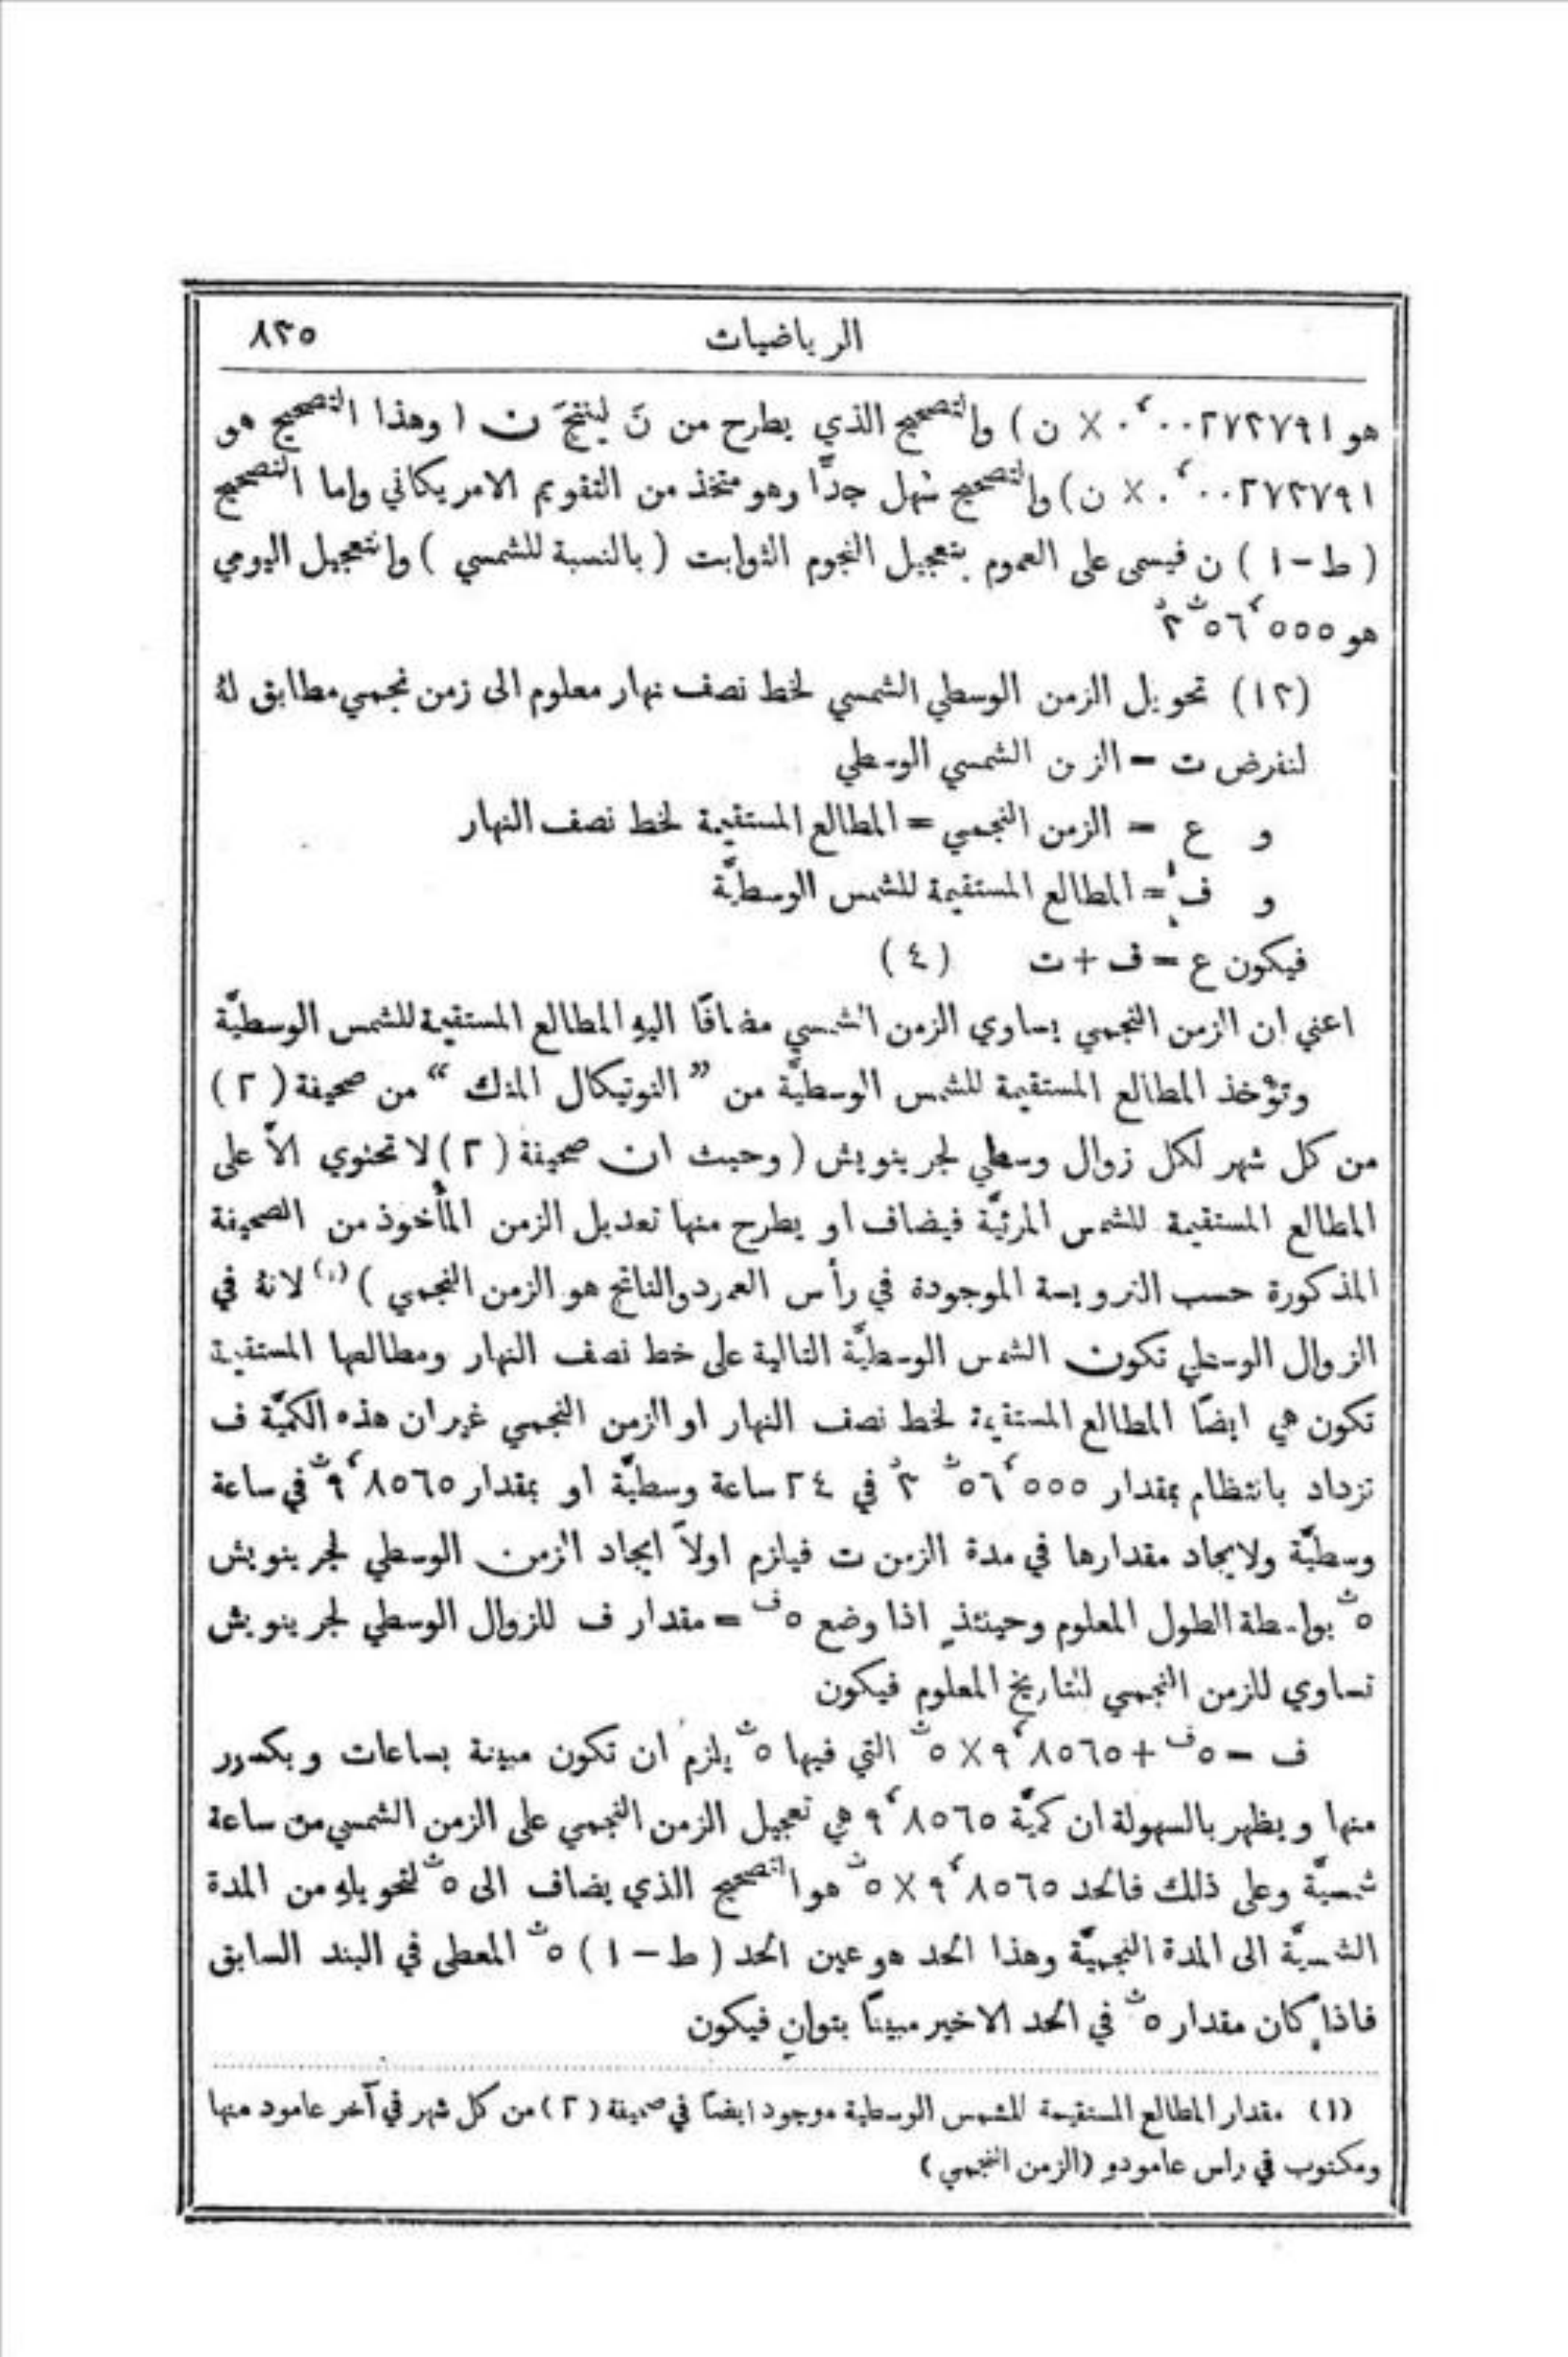 الرياضيات ٨٢٥
هو ٠٬٠٠٢٧٣٧٩١ × ن) والتصحيح الذي يطرح من نَ لينتج ن (وهذا التصحيح هو
٠٬٠٠٢٧٣٧٩١ × ن) والتصحيح سهل جدًّا وهو متخذ من التقويم الامريكاني واما التصحيح
(ط-١) ن فيسمى على العموم بتعجيل النجوم الثوابت (بالنسبة للشمسي) والتعجيل اليومي
هو ٣ ٥٦٬٥٥٥
(١٢) تحويل الزمن الوسطي الشمسي لخط نصف نهار معلوم الى زمن نجمي مطابق لهُ
لنفرض ت = الزمن الشمسي الوسطي
و ع = الزمن النجمي = المطالع المستقيمة لخط نصف النهار
و ف = المطالع المستقيمة للشمس الوسطيَّة
فيكون ع = ف + ت (٤)
اعني ان الزمن النجمي يساوي الزمن الشمسي مضافًا اليهِ المطالع المستقيمة للشمس الوسطيَّة
وتؤْخذ المطالع المستقيمة للشمس الوسطيَّة من ” النوتيكال المنك “ من صحيفة (٢)
من كل شهر لكل زوال وسطي لجرينويش (وحيث ان صحيفة (٢) لا تحتوي الاَّ على
المطالع المستقيمة للشمس المرئيَّة فيضاف او يطرح منها تعديل الزمن المأْخوذ من الصحيفة
المذكورة حسب الترويسة الموجودة في رأس العمود والناتج هو الزمن النجمي) (١) لانهُ في
الزوال الوسطي تكون الشمس الوسطيَّة التالية على خط نصف النهار ومطالعها المستقيمة
تكون هي ايضًا المطالع المستقيمة لخط نصف النهار او الزمن النجمي غير ان هذه الكميَّة ف
تزداد بانتظام بمقدار ٣ ٥٦٬٥٥٥ في ٢٤ ساعة وسطيَّة او بمقدار ٩٬٨٥٦٥ث في ساعة
وسطيَّة ولايجاد مقدارها في مدة الزمن ت فيلزم اولاً ايجاد الزمن الوسطي لجرينويش
٥ث بواسطة الطول المعلوم وحينئذٍ اذا وضع ٥ف = مقدار ف للزوال الوسطي لجرينويش
تساوي للزمن النجمي للتاريخ المعلوم فيكون
ف = ٥ف + ٩٬٨٥٦٥ × ٥ث التي فيها ٥ث يلزم ان تكون مبينة بساعات وبكسور
منها ويظهر بالسهولة ان كميَّة ٩٬٨٥٦٥ هي تعجيل الزمن النجمي على الزمن الشمسي من ساعة
شمسيَّة وعلى ذلك فالحد ٩٬٨٥٦٥ × ٥ث هو التصحيح الذي يضاف الى ٥ث لتحويلهِ من المدة
الشمسيَّة الى المدة النجميَّة وهذا الحد هو عين الحد (ط - ١) ٥ث المعطى في البند السابق
فاذا كان مقدار ٥ث في الحد الاخير مبينًا بثوانٍ فيكون
(١) مقدار المطالع المستقيمة للشمس الوسطية موجود ايضًا في صحيفة (٢) من كل شهر في آخر عامود منها
ومكتوب في راس عامودهِ (الزمن النجمي)